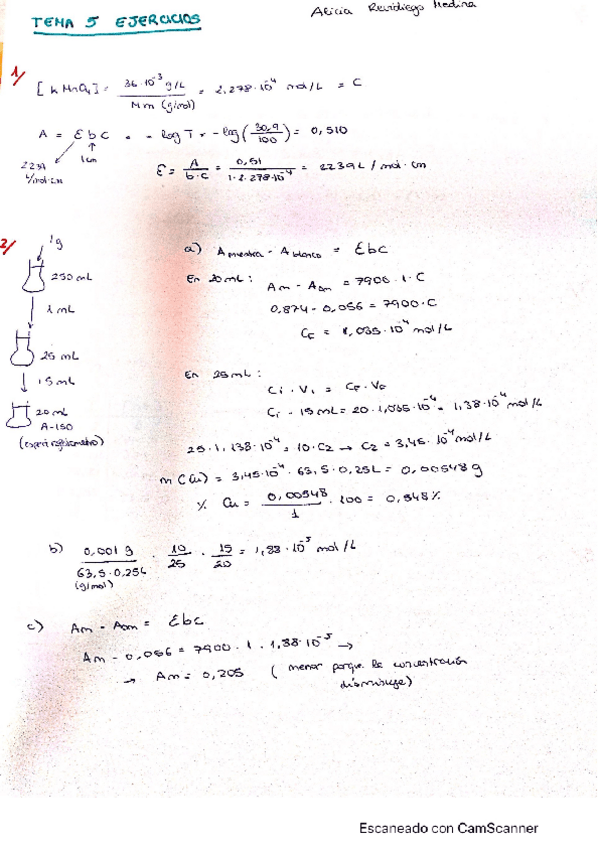 TEMA 5 EJERCICIOS
Alicia Revidiego Medina
1/
[KMnO4] = 36·10^-3 g/L / Mm (g/mol) = 2,278·10^-4 mol/L = C
A = εbc = - log T = - log (30,9/100) = 0,510
2239 L/mol·cm
1cm
ε = A / b·c = 0,51 / 1·2.278·10^-4 = 2239 L / mol·cm
2/
1g
250 mL
1 mL
25 mL
15 mL
20 mL
A-150
a) A muestra - A blanco = εbc
En 20 mL:
Am - Abm = 7900·1·C
0,874 - 0,056 = 7900·C
CF = 1,035·10^-4 mol/L
En 25 mL:
Ci · Vi = CF · VF
Ci · 15 mL = 20·1,035·10^-4 = 1,38·10^-4 mol/L
25·1,138·10^-4 = 10·C2 → C2 = 3,45·10^-4 mol/L
m C(u) = 3,45·10^-4 · 63,5·0,25L = 0,00548 g
% Cu = 0,00548 / 1 · 100 = 0,548%
b) 0,001 g / 63,5·0,25L (g/mol) · 10/25 · 15/20 = 1,88·10^-5 mol/L
c) Am - Abm = εbc
Am - 0,056 = 7900·1·1,88·10^-5 →
→ Am = 0,205 (menor porque la concentración
disminuye)
Escaneado con CamScanner